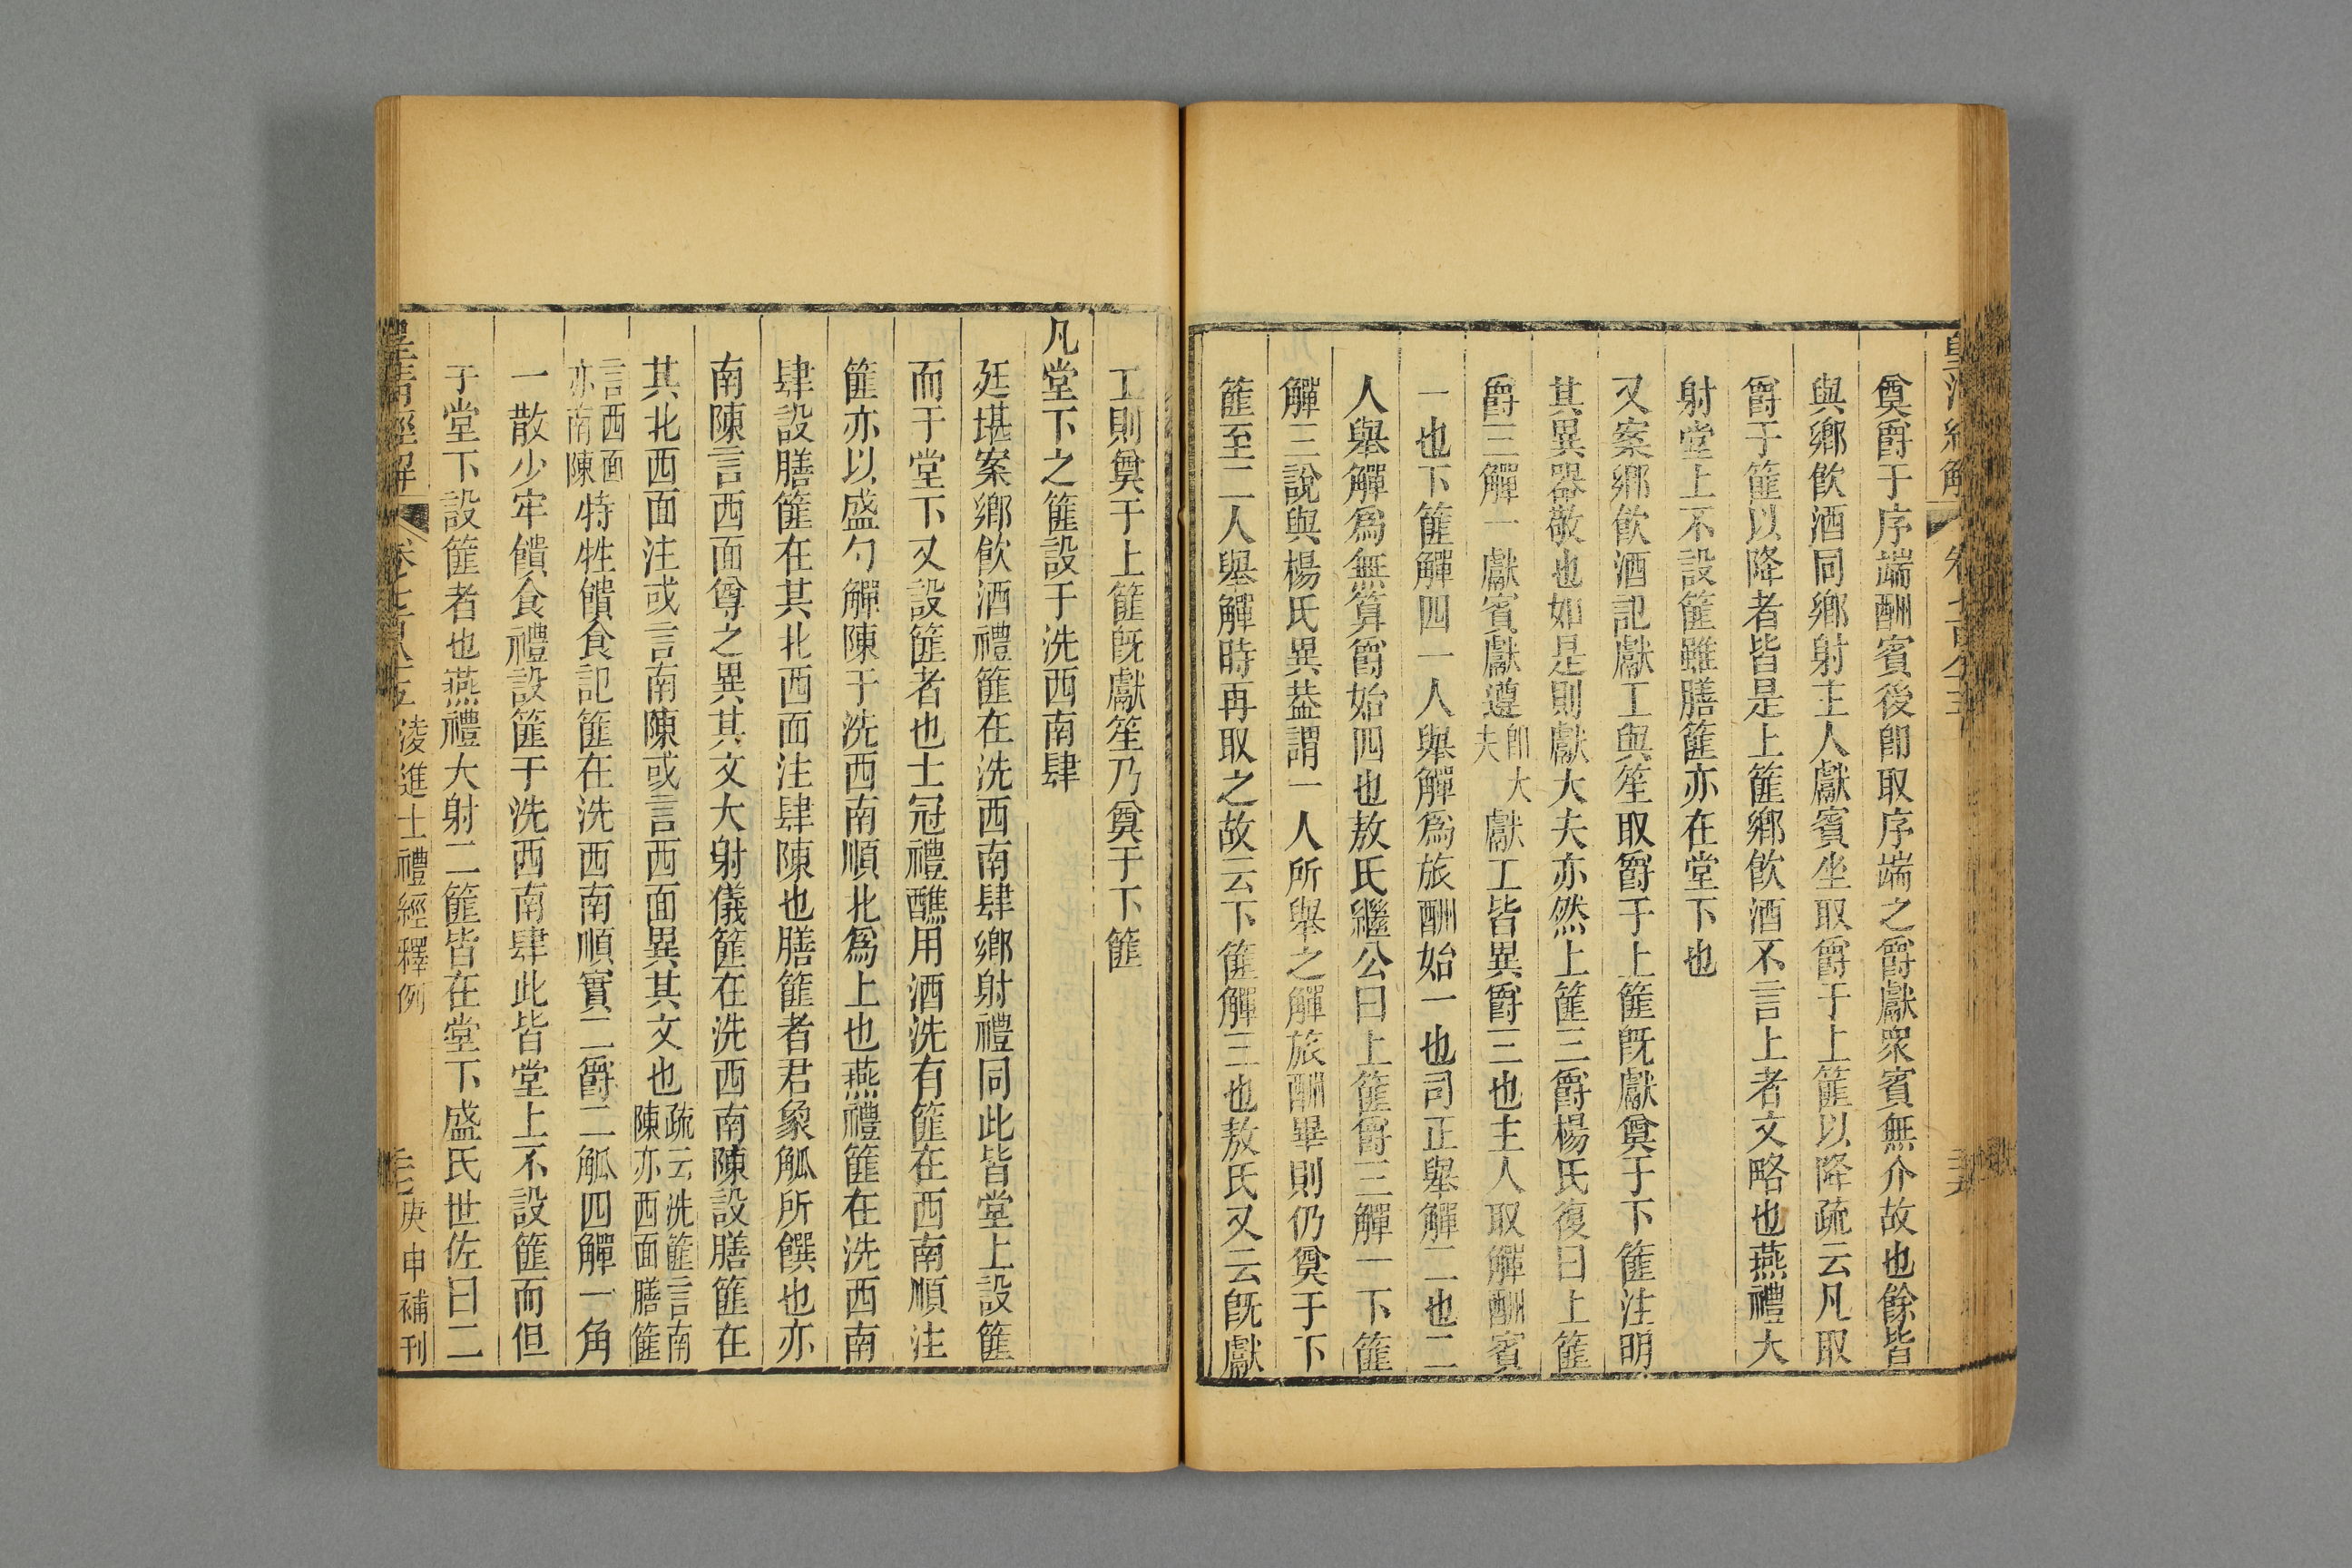 奠爵于序端酬賓後卽取序端之爵獻衆賓無介故也餘皆
與鄉飮酒同鄉射主人獻賓坐取爵于上篚以降疏云凡取
爵于篚以降者皆是上篚鄉飮酒不言上者文略也燕禮大
射堂上不設篚雖膳篚亦在堂下也
又案鄉飮酒記獻工與笙取爵于上篚旣獻奠于下篚注明
其異器敬也如是則獻大夫亦然上篚三爵楊氏復曰上篚
爵三觶一獻賓獻遵卽大夫獻工皆異爵三也主人取觶酬賓
一也下篚觶四一人舉觶爲旅酬始一也司正舉觶二也二
人舉觶爲無算爵始四也敖氏繼公曰上篚爵三觶一下篚
觶三說與楊氏異葢謂一人所舉之觶旅酬畢則仍奠于下
篚至二人舉觶時再取之故云下篚觶三也敖氏又云旣獻
工則奠于上篚旣獻笙乃奠于下篚
凡堂下之篚設于洗西南肆
廷堪案鄉飮酒禮篚在洗西南肆鄉射禮同此皆堂上設篚
而于堂下又設篚者也士冠禮醮用酒洗有篚在西南順注
篚亦以盛勺觶陳于洗西南順北爲上也燕禮篚在洗西南
肆設膳篚在其北西面注肆陳也膳篚者君象觚所饌也亦
南陳言西面尊之異其文大射儀篚在洗西南陳設膳篚在
其北西面注或言南陳或言西面異其文也疏云洗篚言南陳亦西面膳篚
言西面亦南陳特牲饋食記篚在洗西南順實二爵二觚四觶一角
一散少牢饋食禮設篚于洗西南肆此皆堂上不設篚而但
于堂下設篚者也燕禮大射二篚皆在堂下盛氏世佐曰二
皇清經解 卷七百八十五 淩進士禮經釋例 庚申補刊